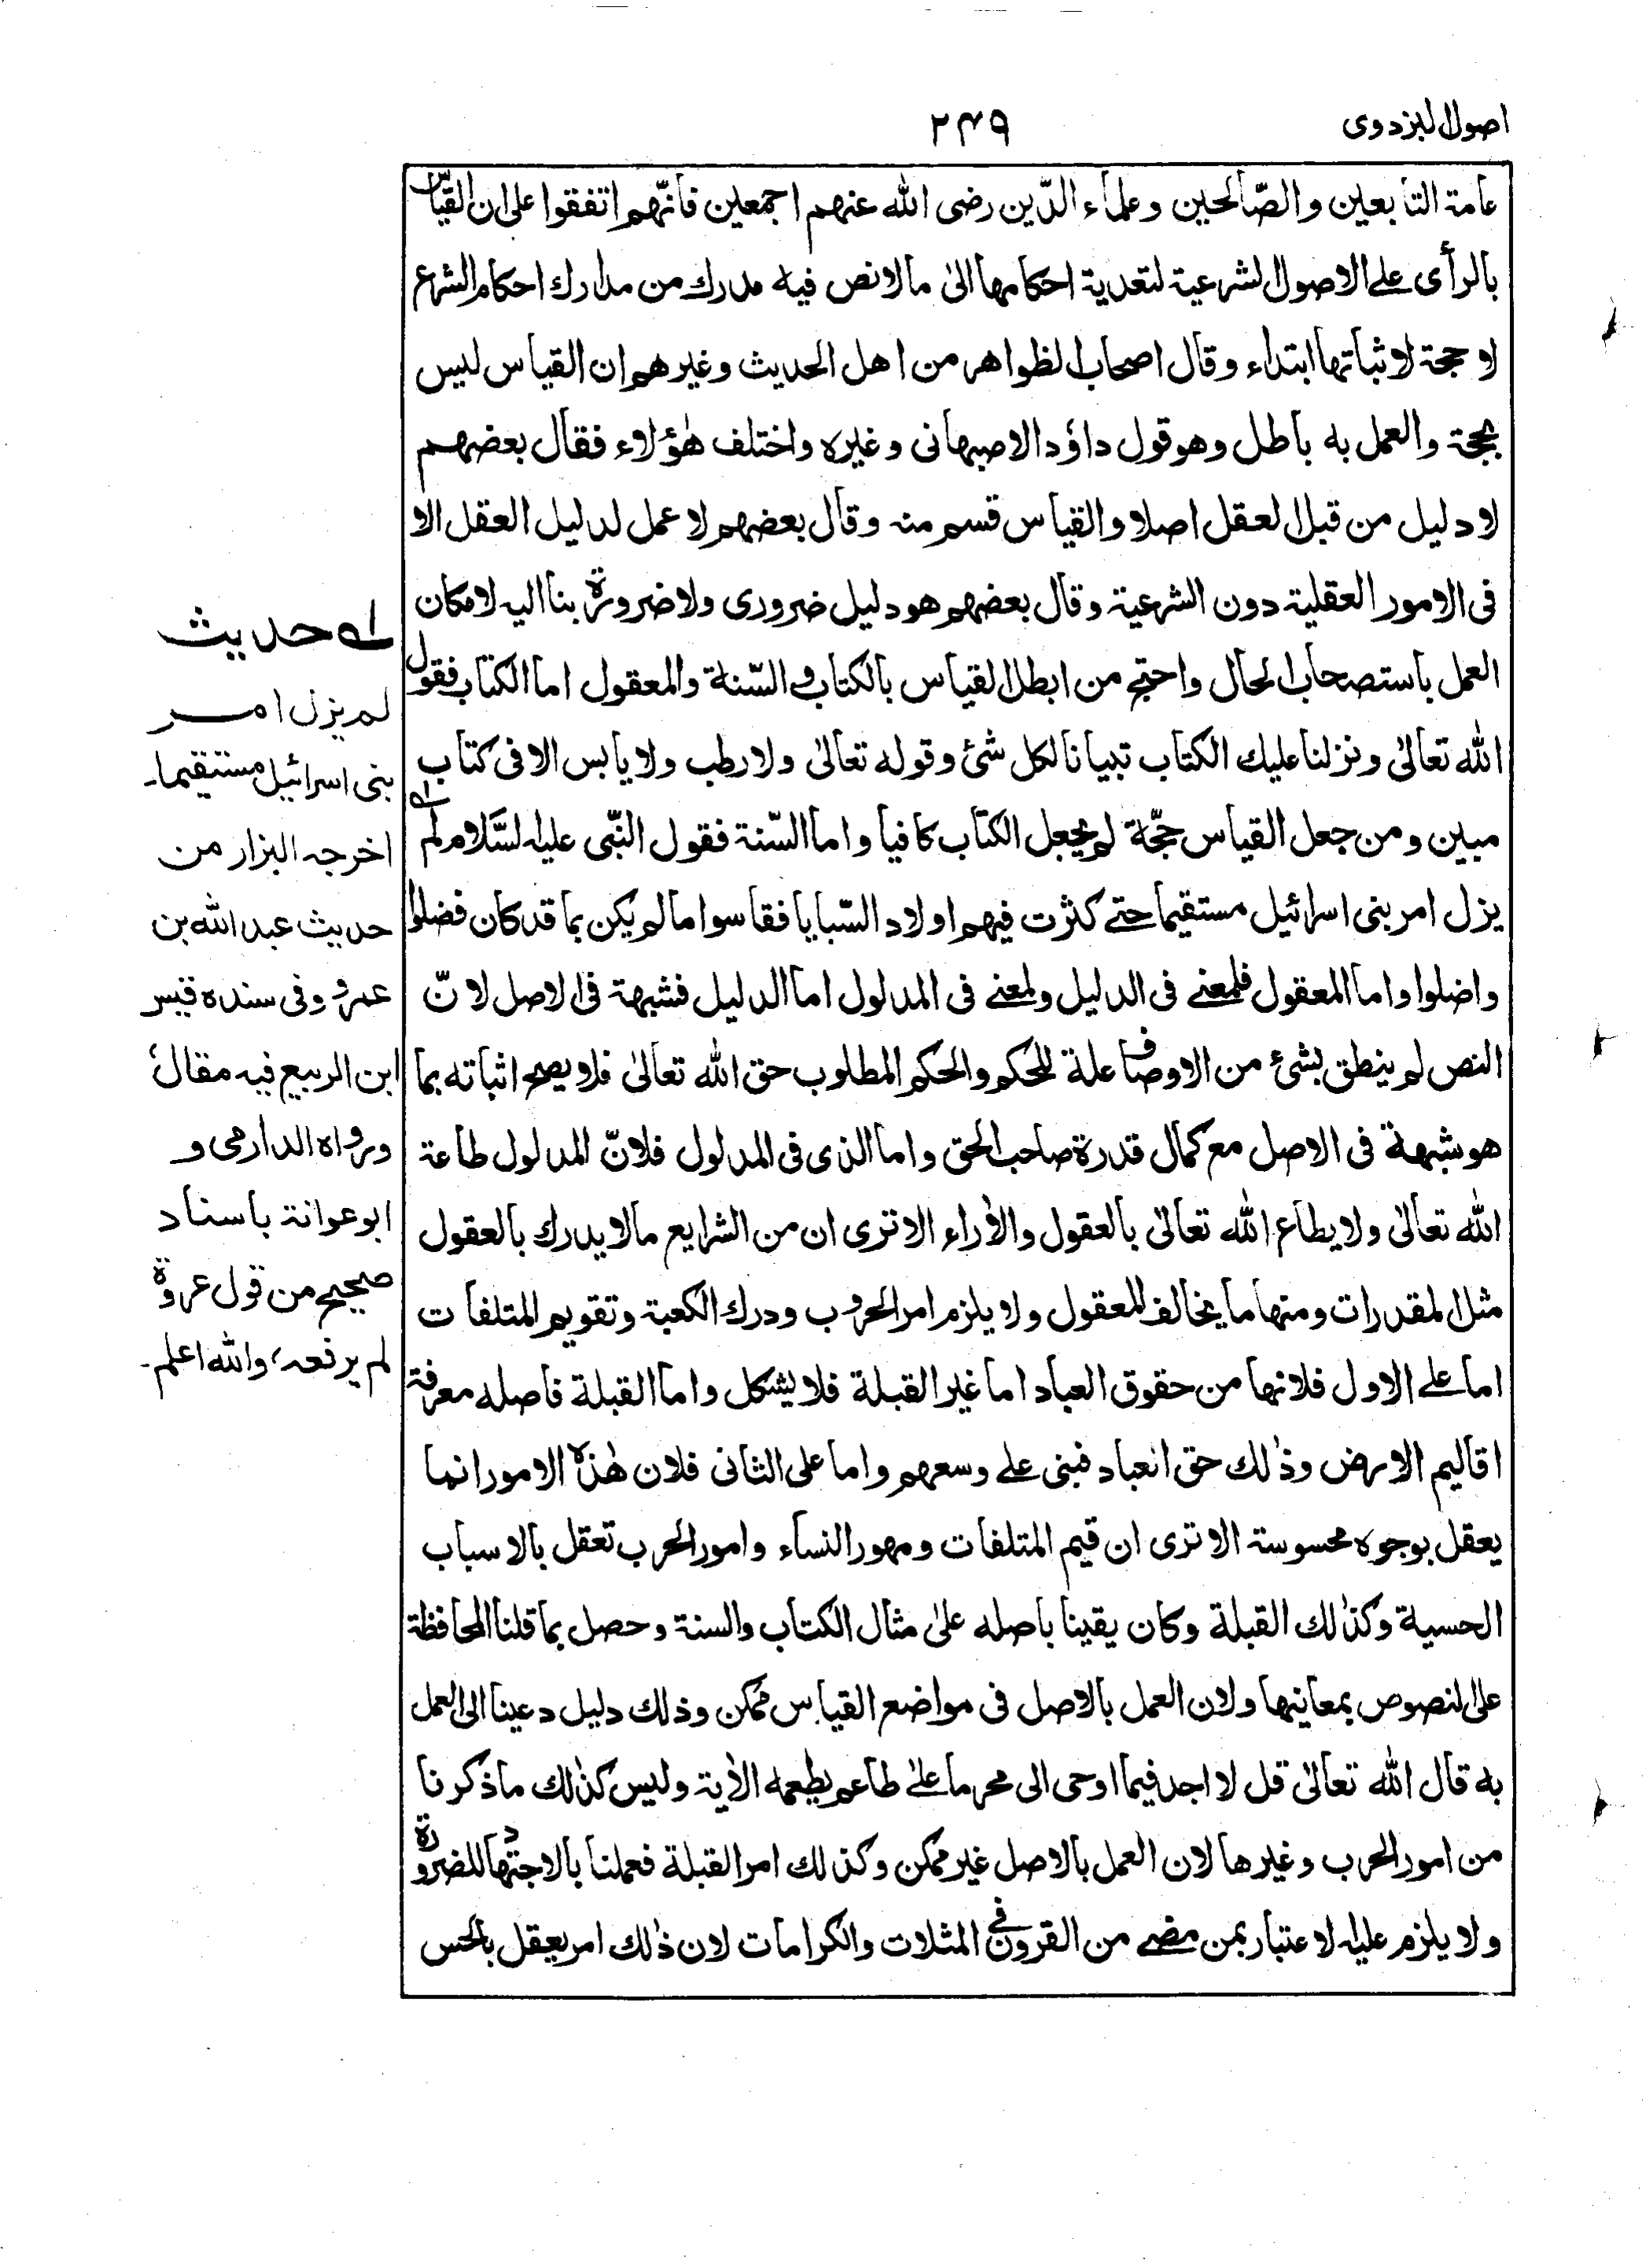 اصول البزدوی
۲۴۹
عامة التابعین والصّالحین وعلماء الدّین رضی الله عنهم اجمعین فانّهم اتفقوا علی ان القیاس
بالرأی علی الاصول الشرعیة لتعدیة احکامها الیٰ مالا نص فیه مدرك من مدارك احکام الشرع
لا حجة لاثباتها ابتداء وقال اصحاب الظواهر من اهل الحدیث وغیرهم ان القیاس لیس
بحجة والعمل به باطل وهو قول داؤد الاصبهانی وغیره واختلف هٰؤلاء فقال بعضهم
لا دلیل من قبل العقل اصلا والقیاس قسم منه وقال بعضهم لا عمل لدلیل العقل الا
فی الامور العقلیة دون الشرعیة وقال بعضهم هو دلیل ضروری ولا ضرورة بنا الیه لامکان
العمل باستصحاب الحال واحتج من ابطل القیاس بالکتاب والسّنة والمعقول اما الکتاب فقول
الله تعالیٰ ونزلنا علیك الکتاب تبیانا لکل شئ وقوله تعالیٰ ولا رطب ولا یابس الا فی کتاب
مبین ومن جعل القیاس حجّة لم یجعل الکتاب کافیا واما السّنة فقول النّبی علیه السّلام لم ؎۱
یزل امر بنی اسرائیل مستقیما حتے کثرت فیهم اولاد السّبایا فقاسوا مالم یکن بما قد کان فضلوا
واضلوا واما المعقول فلمعنے فی الدلیل ولمعنے فی المدلول اما الدلیل فشبهة فی الاصل لانّ
النص لم ینطق بشئ من الاوصاف علة للحکم والحکم المطلوب حق الله تعالیٰ فلا یصح اثباته بما
هو شبهة فی الاصل مع کمال قدرة صاحب الحق واما الذی فی المدلول فلانّ المدلول طاعة
الله تعالیٰ ولا یطاع الله تعالیٰ بالعقول والأراء الا تری ان من الشرایع مالا یدرك بالعقول
مثل المقدرات ومنها ما یخالف المعقول ولا یلزم امر الحروب ودرك الکعبة وتقویم المتلفات
اما علے الاول فلانها من حقوق العباد اما غیر القبلة فلا یشکل واما القبلة فاصله معرفة
اقالیم الارض وذٰلك حق العباد فبنی علے وسعهم واما علی الثانی فلان هٰذه الامور انما
یعقل بوجوه محسوسة الا تری ان قیم المتلفات ومهور النساء وامور الحرب تعقل بالاسباب
الحسیة وکذٰلك القبلة وکان یقینا باصله علیٰ مثال الکتاب والسنة وحصل بما قلنا المحافظة
علی النصوص بمعانیها ولان العمل بالاصل فی مواضع القیاس ممکن وذلك دلیل دعینا الی العمل
به قال الله تعالیٰ قل لا اجد فیما اوحی الی محرما علیٰ طاعم یطعمه الأیة ولیس کذٰلك ما ذکرنا
من امور الحرب وغیرها لان العمل بالاصل غیر ممکن وکذلك امر القبلة فعملنا بالاجتهاد للضرورة
ولا یلزم علیه الاعتبار بمن مضے من القرون فی المثلات والکرامات لان ذٰلك امر یعقل بالحس
؎۱ حدیث
لم یزل امر
بنی اسرائیل مستقیما۔
اخرجه البزار من
حدیث عبد الله بن
عمرو وفی سنده قیس
ابن الربیع فیه مقال
ورواه الدارمی و
ابو عوانة باسناد
صحیح من قول عروة
لم یرفعه، والله اعلم۔